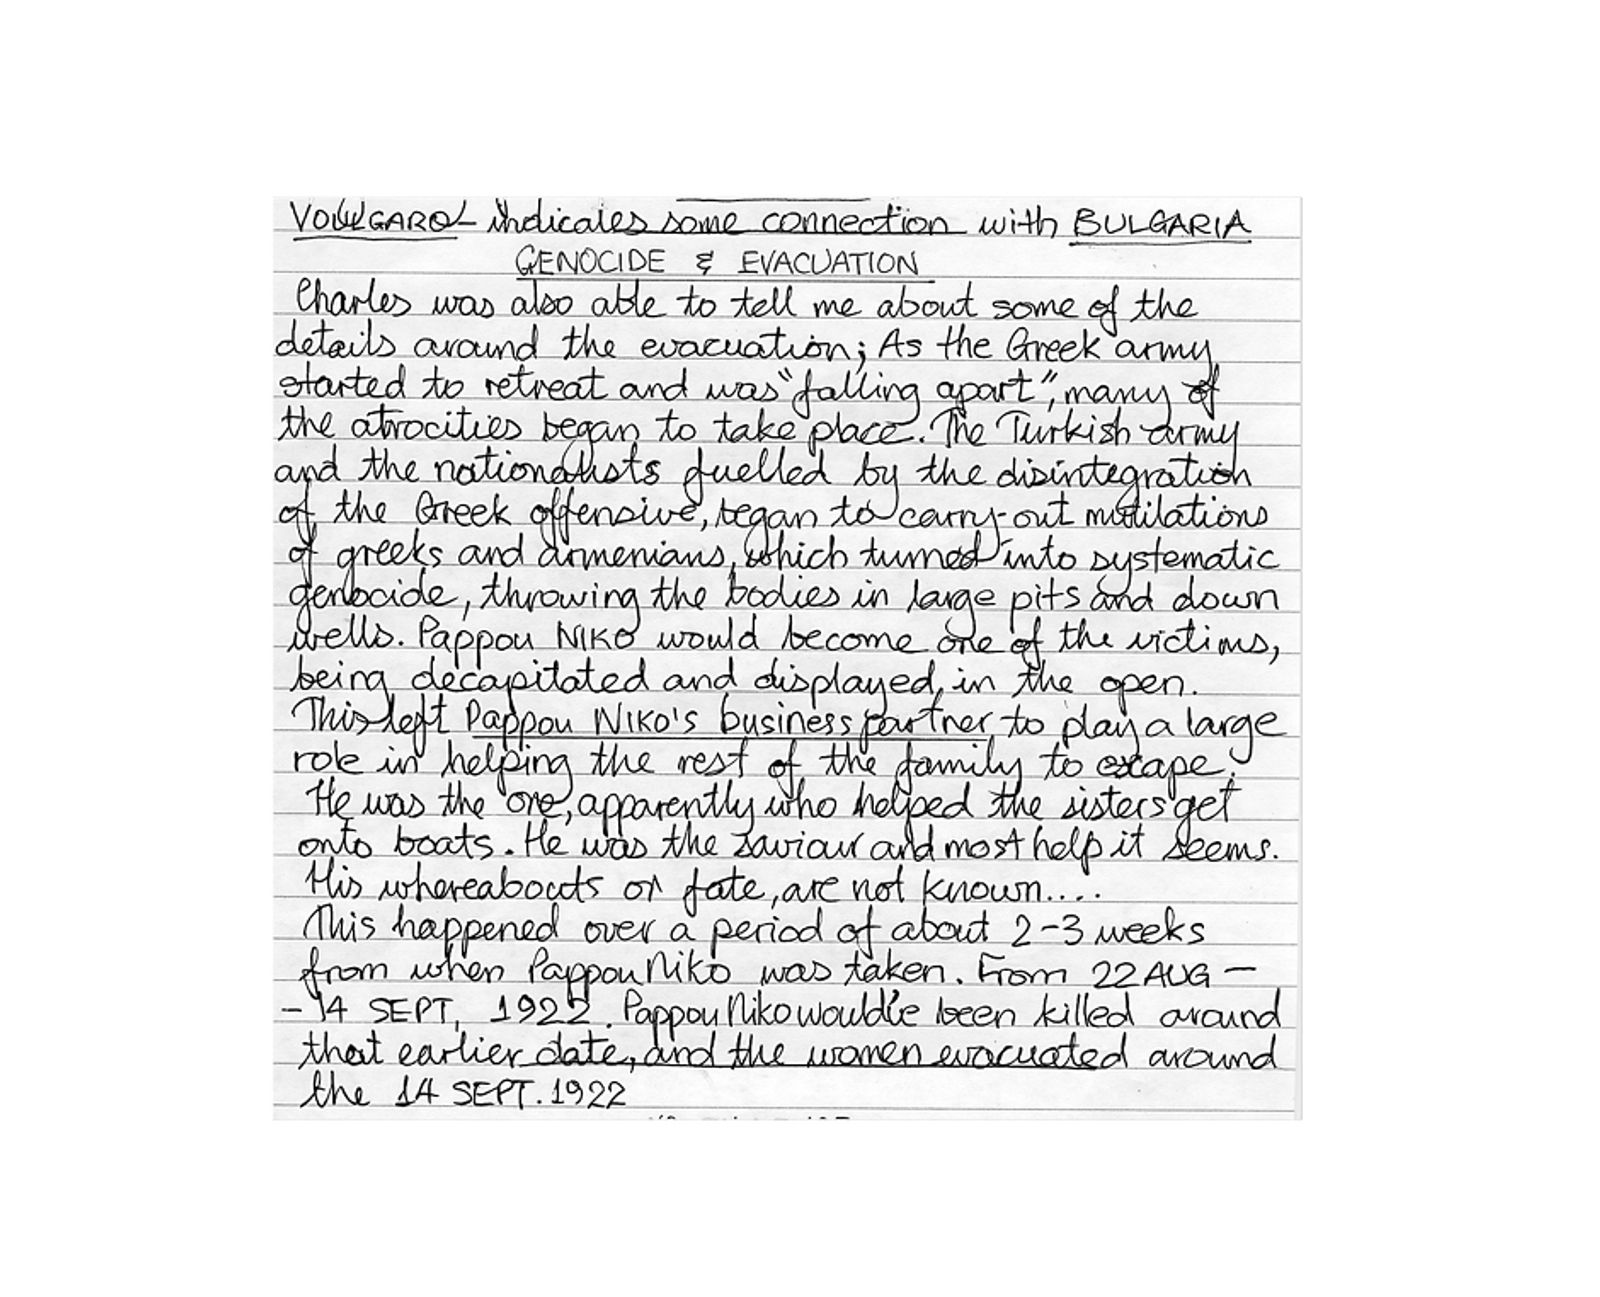 VOULGARO - indicates some connection with BULGARIA
GENOCIDE & EVACUATION
Charles was also able to tell me about some of the
details around the evacuation; As the Greek army
started to retreat and was "falling apart", many of
the atrocities began to take place. The Turkish army
and the nationalists fuelled by the disintegration
of the Greek offensive, began to carry-out mutilations
of greeks and armenians, which turned into systematic
genocide, throwing the bodies in large pits and down
wells. Pappou NIKO would become one of the victims,
being decapitated and displayed, in the open.
This left Pappou NIKO's business partner to play a large
role in helping the rest of the family to escape.
He was the one, apparently who helped the sisters get
onto boats. He was the saviour and most help it seems.
His whereabouts or fate, are not known....
This happened over a period of about 2-3 weeks
from when Pappou Niko was taken. From 22 AUG -
- 14 SEPT, 1922. Pappou Niko would've been killed around
that earlier date, and the women evacuated around
the 14 SEPT. 1922